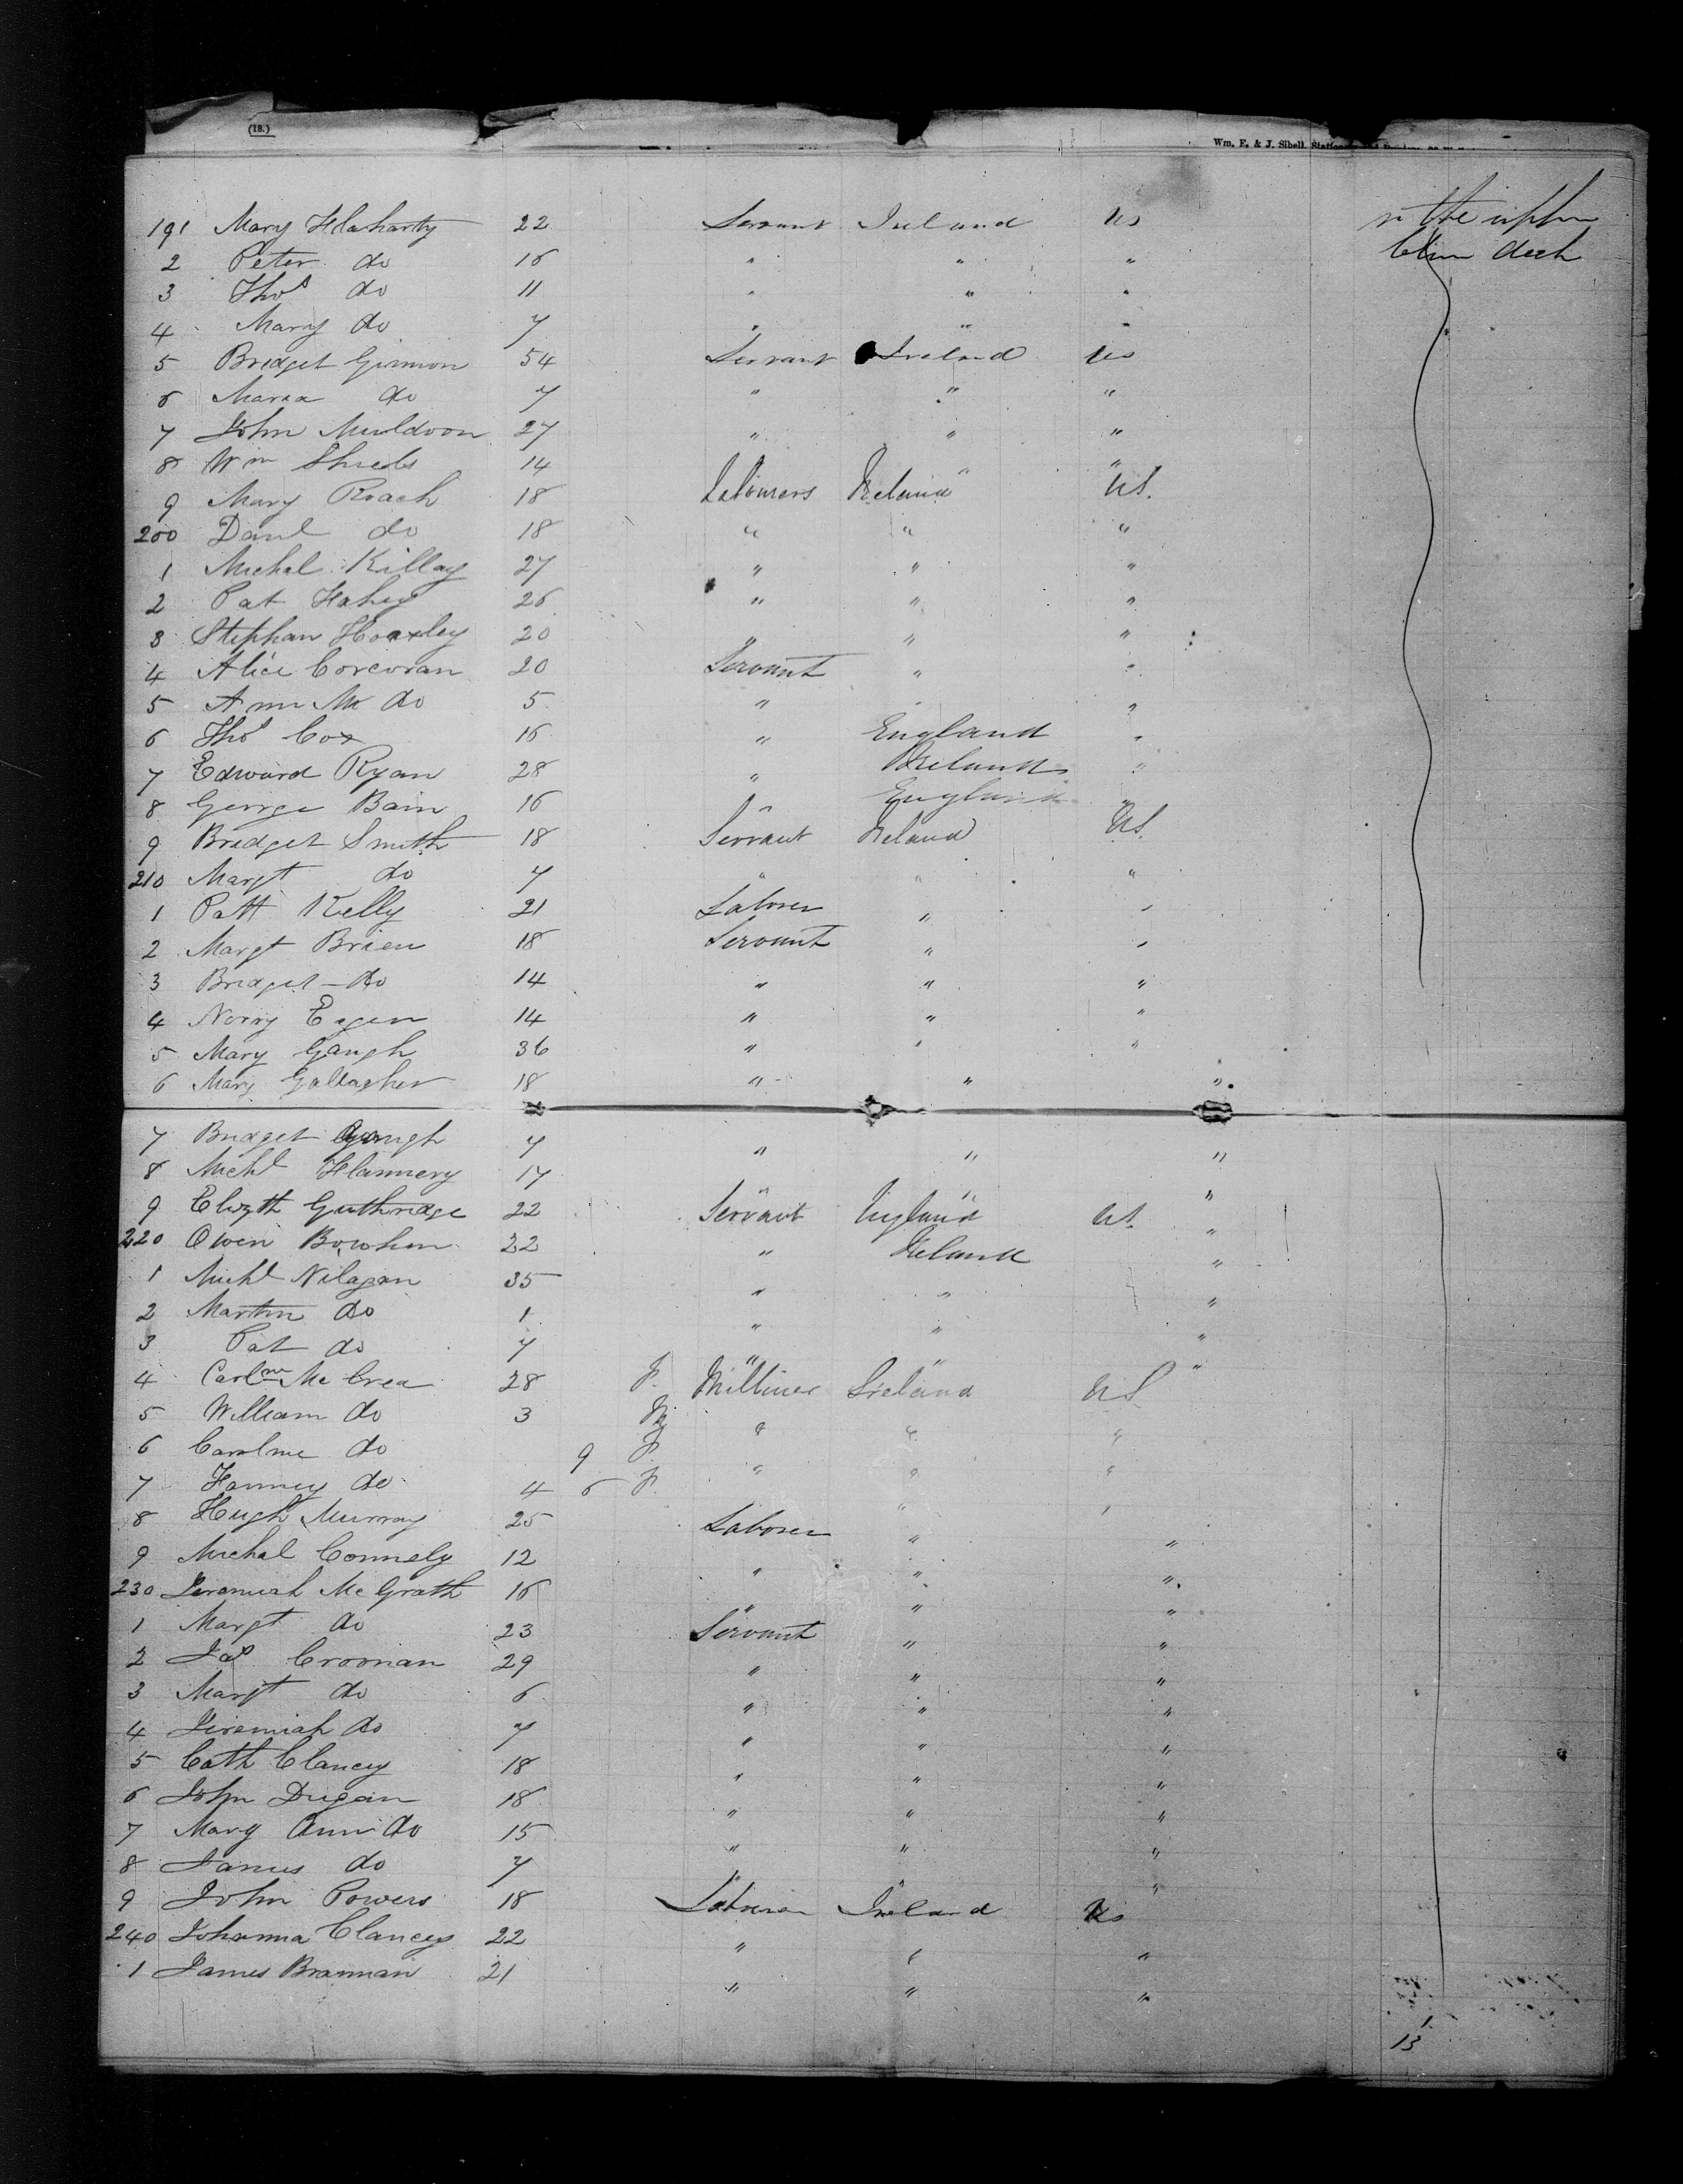 (18.)
Wm. F. & J. Sibell, Stationers
191 Mary Flaharty 22 Servant Ireland US in the upper
2 Peter do 16 " " " between deck
3 Thos do 11 " " "
4 Mary do 7 " " "
5 Bridget Gimmon 54 Servant Ireland US
6 Maria do 7 " " "
7 John Muldoon 27 " " "
8 Wm Shiels 14 " "
9 Mary Roach 18 Labourers Ireland US.
200 Danl do 18 " " "
1 Michal Killay 27 " " "
2 Pat Fahey 26 " " "
3 Stephan Hoarley 20 " " "
4 Alice Corcoran 20 Servant " "
5 Ann M do 5 " " "
6 Thos Cox 16 " England "
7 Edward Ryan 28 " Ireland "
8 George Bain 16 " England "
9 Bridget Smith 18 Servant Ireland US.
210 Margt do 7 " " "
1 Patt Kelly 21 Laborer " "
2 Margt Brien 18 Servant " "
3 Bridget do 14 " " "
4 Norry Egen 14 " " "
5 Mary Gaugh 36 " " "
6 Mary Gallagher 18 " " "
7 Bridget Gaugh 7 " " "
8 Michl Flannery 17 " " "
9 Elizth Guthridge 22 Servant England US. "
220 Owen Bowhen 22 " Ireland "
1 Michl Nilagan 35 " " "
2 Martin do 1 " " "
3 Pat do 7 " " "
4 Carlne McCrea 28 F. Milliner Ireland US
5 William do 3 M " " "
6 Caroline do 9 F " " "
7 Fanney do 4 6 F. " "
8 Hugh Murray 25 Laborer " "
9 Michal Connely 12 " " "
230 Jeremiah McGrath 16 " " "
1 Margt do 23 Servant " "
2 Jas Croman 29 " " "
3 Margt do 6 " " "
4 Jeremiah do 7 " " "
5 Cath Clancy 18 " " "
6 John Dugan 18 " " "
7 Mary Ann do 15 " " "
8 James do 7 " " "
9 John Powers 18 Laborer Ireland US
240 Johanna Clancy 22 " " "
1 James Brannan 21 " " "
13